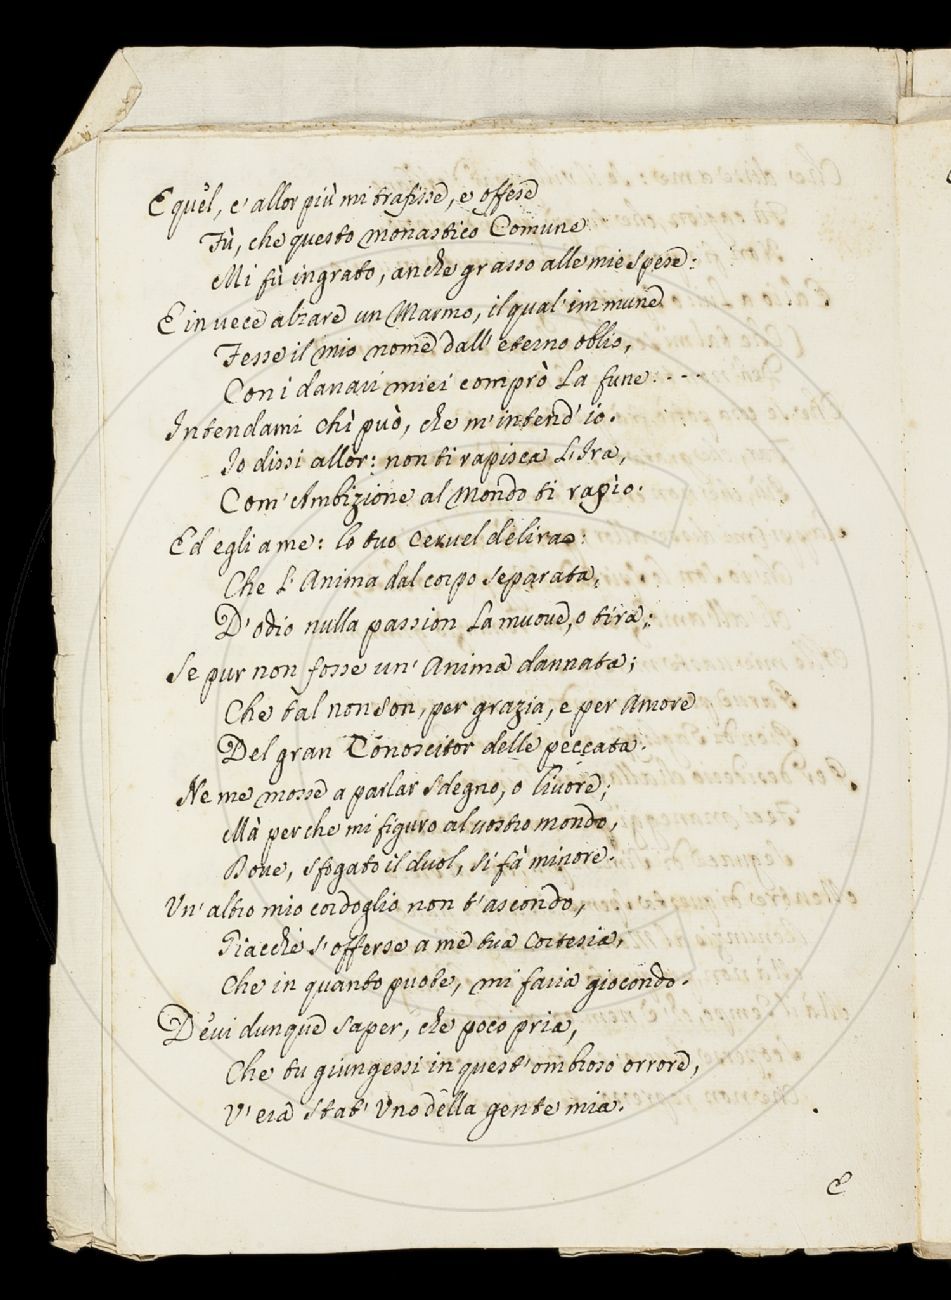 E quèl, e' allor più mi trafisse, e offese
Fù, che questo monastico Comune
Mi fù ingrato, anche grasso alle mie spese:
E in vece alzare un Marmo, il qual' immune
Fesse il mio nome dall' eterno oblio,
Con i danari miei comprò La fune. - - -
Intendami chì può, che m'intend' io.
Io dissi allor: non ti rapisca L'Ira,
Com' Ambizione al Mondo ti rapìo.
Ed egli a me: lo tuo Cervel delira:
Che L' Anima dal corpo separata,
D' odio nulla passion La muove, o tira;
Se pur non fosse un' Anima dannata;
Che tal non son, per grazia, e per Amore
Del gran Conoscitor delle peccata.
Ne me mosse a parlar Sdegno, o livore;
Mà perche mi figuro al vostro mondo,
Dove, sfogato il duol, si fà minore.
Un' altro mio cordoglio non t'ascondo,
Giacchè s'offerse a me tua Cortesia,
Che in quanto puote, mi faria giocondo.
Dèvi dunque saper, che poco pria,
Che tu giungessi in quest' ombroso orrore,
V' era Stat' Uno della gente mia.
E